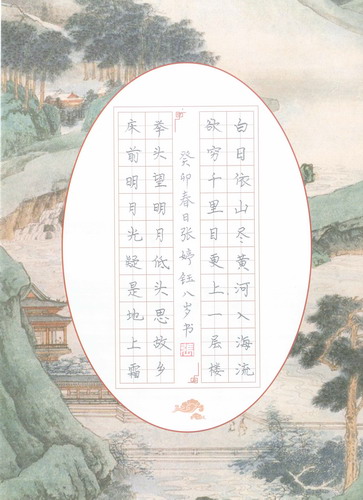 白日依山尽黄河入海流
欲穷千里目更上一层楼
癸卯春日张婷钰八岁书
举头望明月低头思故乡
床前明月光疑是地上霜